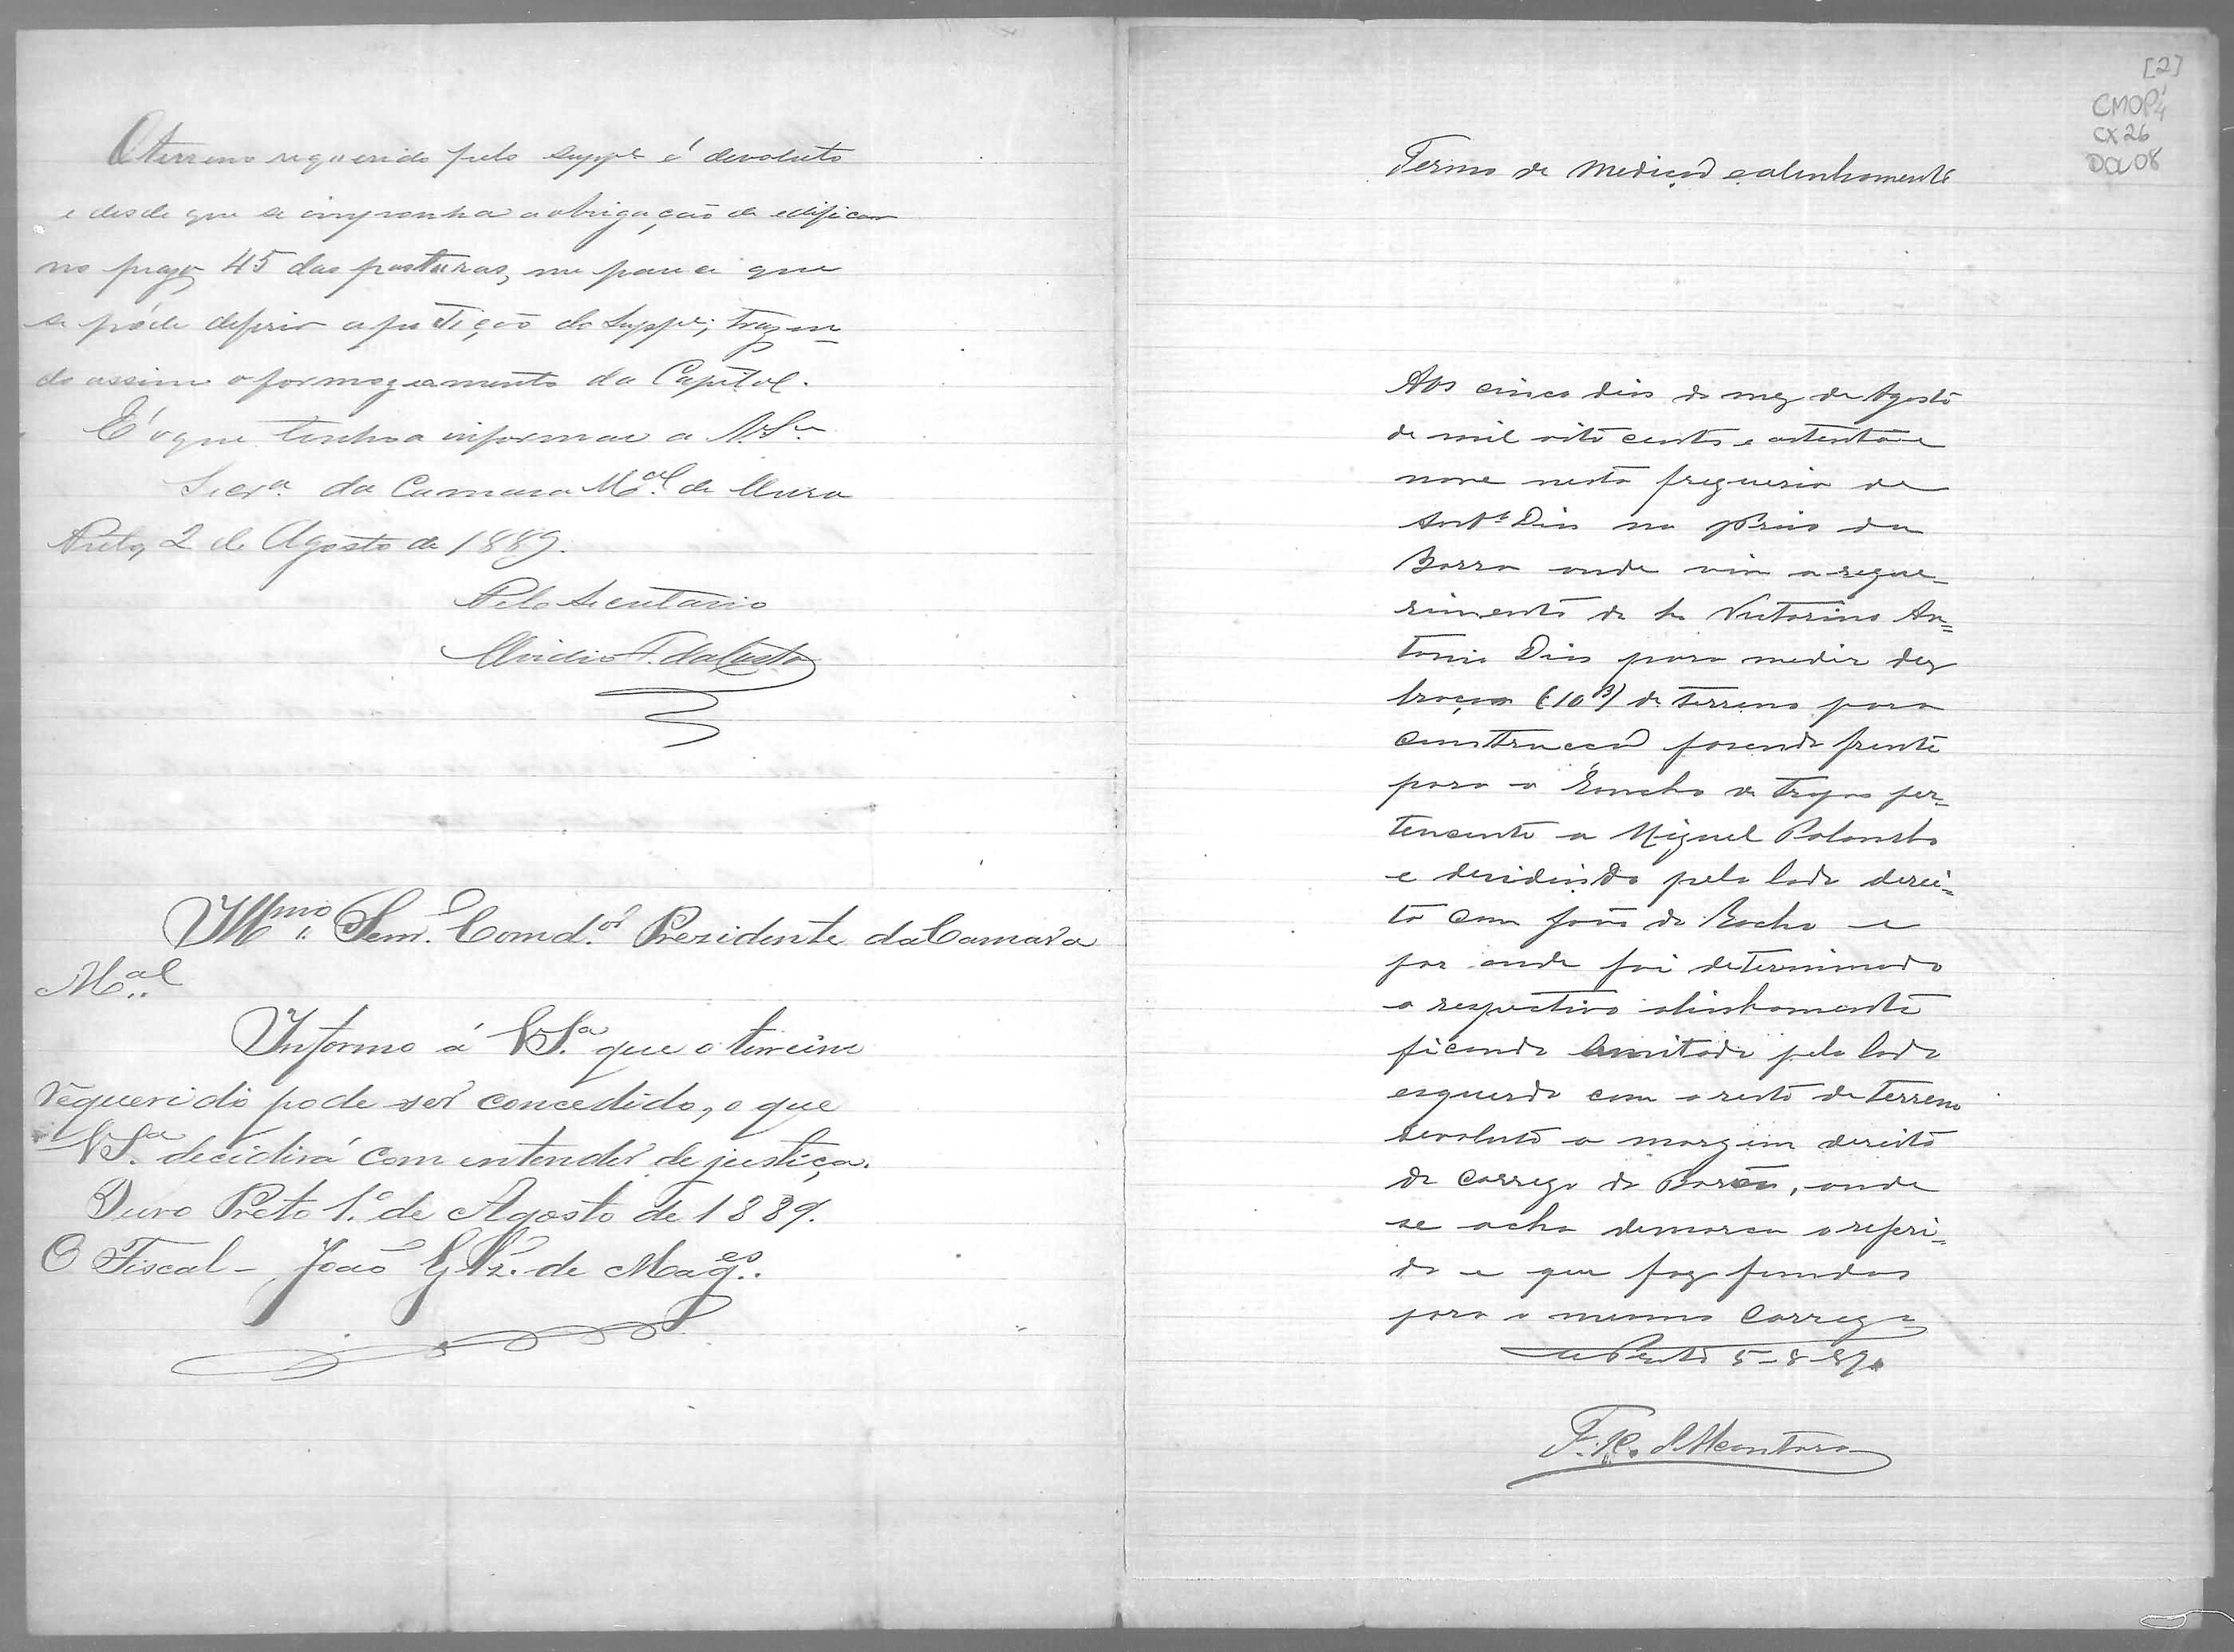 O terreno requerido pelo suppe é devoluto
e desde que se imponha a obrigação de edificar
no prazo 45 das posturas, me parece que
se póde deferir a petição do Suppe; trazen-
do assim o formozeamento da Capital.
É o que tenho a informar a V. Sa
Secra. da Camara Mal. de Ouro
Preto, 2 de Agosto de 1889.
Pelo Secretario
Ovidio F. da Costa
Illmo. Senr. Comdor. Prezidente da Camara
Mal.
Informo á V Sa. que o terreino
requerido pode ser concedido, o que
V Sa. decidirá com entender de justiça.
Ouro Preto 1.º de Agosto de 1889.
O Fiscal - João Glz. de Mages.
[2]
CMOP
CX 26
DO 08
Termo de Medição e alinhamento
Aos cinco dias do mez de Agosto
de mil oito centos e oitenta e
nove nesta freguesia de
Anto Dias na Praia da
Barra onde vim a reque-
rimento do Sr Victorino An=
tonio Dias para medir dez
braças (10 B) de terreno para
construcção fasendo frente
para o Rancho de Tropas per=
tencente a Miguel Polombo
e devidindo pelo lado direi=
to com João da Rocha e
por onde foi determinado
o respectivo alinhamento
ficando limitado pelo lado
esquerdo com o resto do terreno
devoluto a margem direita
do corrego do Barão, onde
se acha demarca o referi=
do e que faz fundos
para o mesmo Corrego
O Preto 5-8-89.
F. R. d'Alcantara